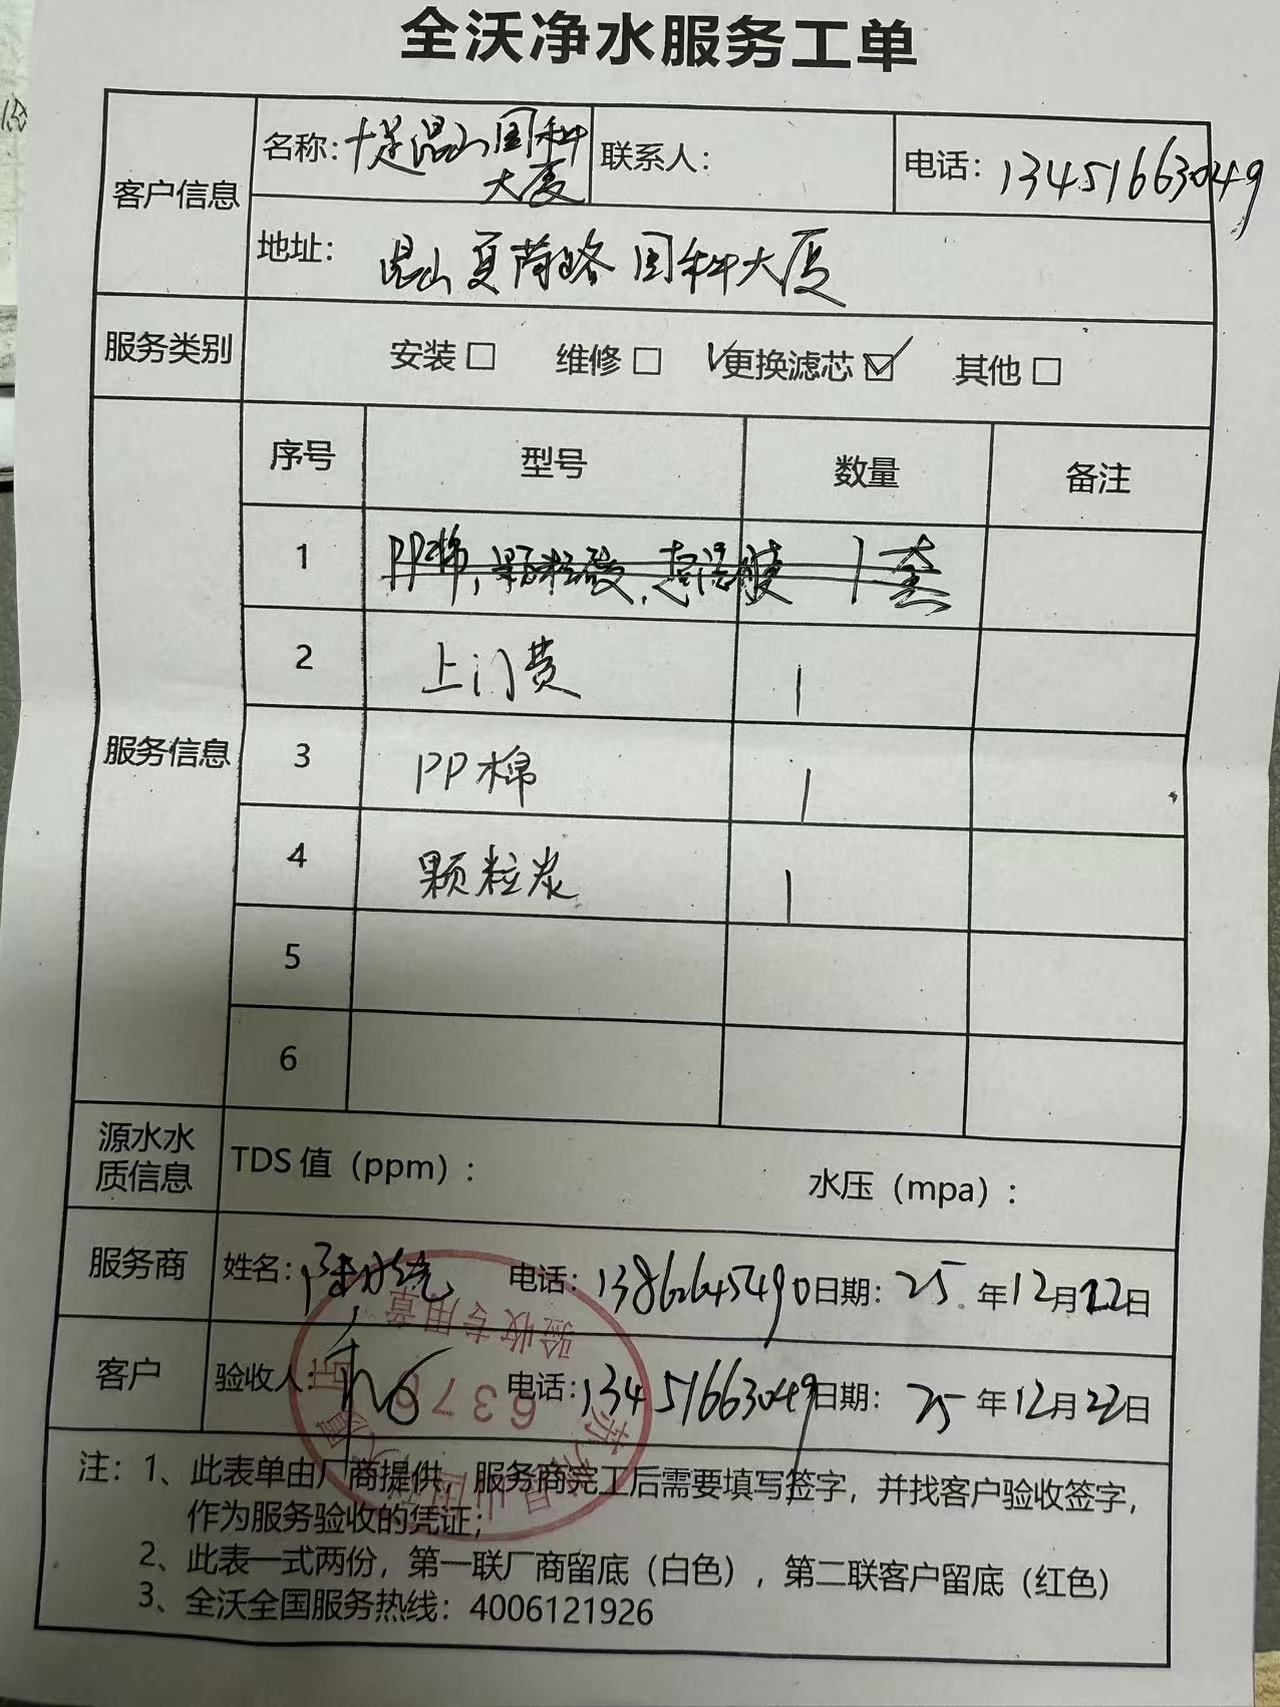 全沃净水服务工单
客户信息
名称：昆山国科大厦
联系人：
电话：13451663049
地址：昆山夏荷路国科大厦
服务类别
安装□ 维修□ √更换滤芯☑ 其他□
服务信息
序号 型号 数量 备注
1 PP棉，颗粒碳， 1套
2 上门费 1
3 PP棉 1
4 颗粒炭 1
5
6
源水水质信息
TDS 值（ppm）： 水压（mpa）：
服务商 姓名： 电话：13862645490 日期：25 年 12 月 22 日
验收专用章
客户 验收人： 电话：13451663049 日期：25 年 12 月 22 日
注：1、此表单由厂商提供，服务商完工后需要填写签字，并找客户验收签字，
作为服务验收的凭证；
2、此表一式两份，第一联厂商留底（白色），第二联客户留底（红色）
3、全沃全国服务热线：4006121926